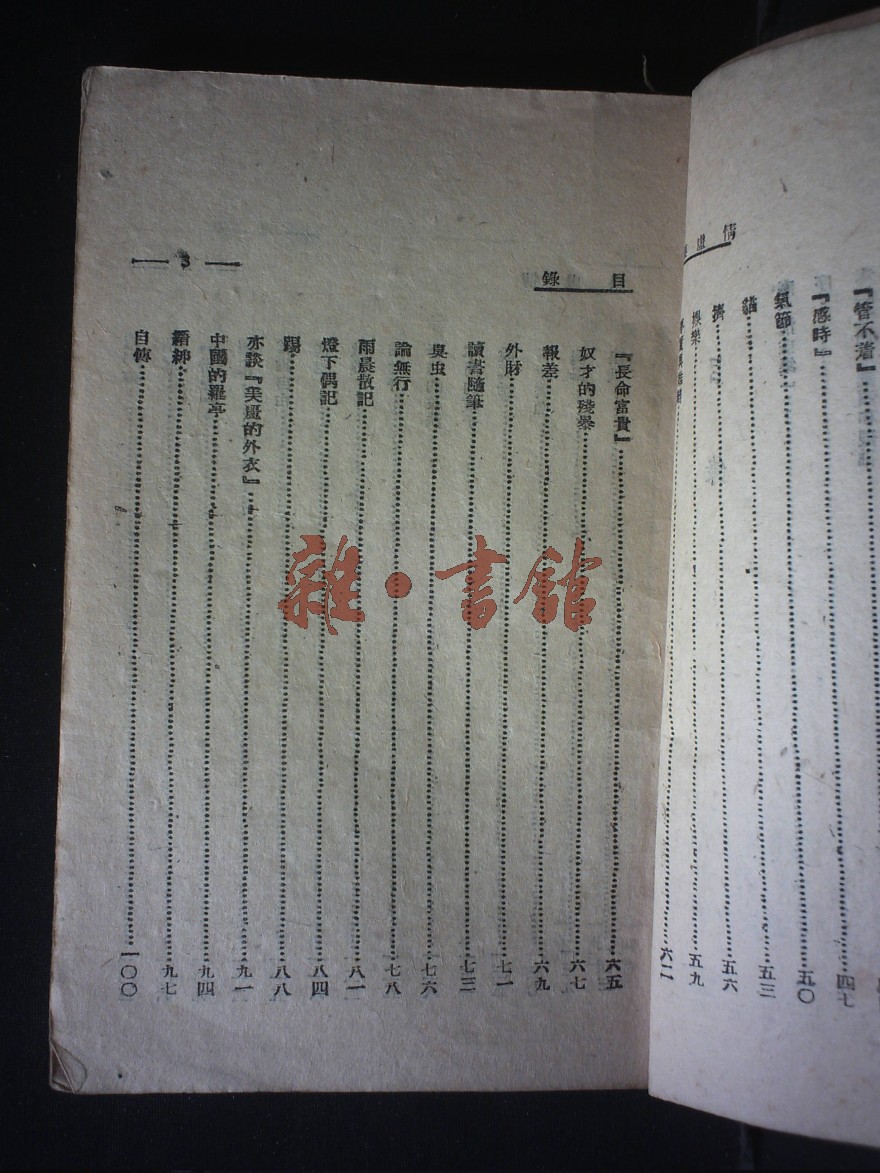 虛情
『管不着』⋯⋯四七
『感時』⋯⋯五〇
氣節⋯⋯五三
貓⋯⋯五六
擠
娛樂⋯⋯五九
⋯⋯六二
目錄
『長命富貴』⋯⋯六五
奴才的殘暴⋯⋯六七
報差⋯⋯六九
外財⋯⋯七一
讀書隨筆⋯⋯七三
臭虫⋯⋯七六
論無行⋯⋯七八
雨晨散記⋯⋯八一
燈下偶記⋯⋯八四
踢⋯⋯八八
亦談『美麗的外衣』⋯⋯九一
中國的羅亭⋯⋯九四
縉紳⋯⋯九七
自傳⋯⋯一〇〇
3
雜·書館